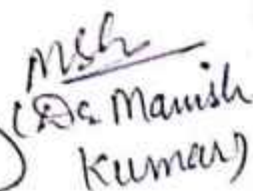 (Dr. Manish
Kumar)